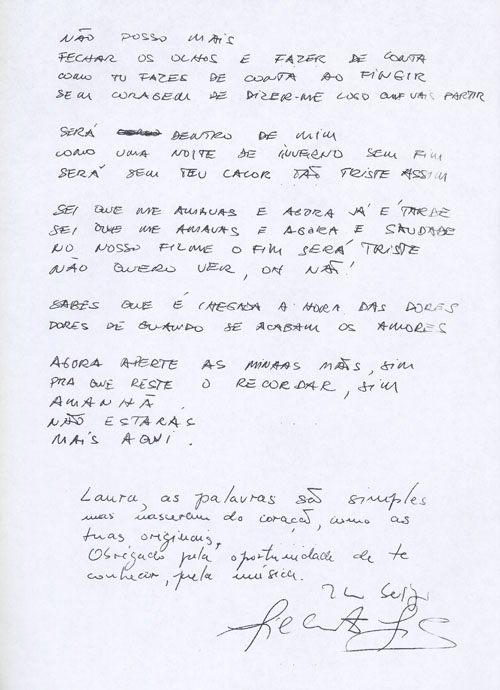 NÃO POSSO MAIS
FECHAR OS OLHOS E FAZER DE CONTA
COMO TU FAZES DE CONTA AO FINGIR
SEM CORAGEM DE DIZER-ME LOGO QUE VAIS PARTIR
SERÁ DENTRO DE MIM
COMO UMA NOITE DE INVERNO SEM FIM
SERÁ SEM TEU CALOR TÃO TRISTE ASSIM
SEI QUE ME AMAVAS E AGORA JÁ É TARDE
SEI QUE ME AMAVAS E AGORA É SAUDADE
NO NOSSO FILME O FIM SERÁ TRISTE
NÃO QUERO VER, OH NÃO!
SABES QUE É CHEGADA A HORA DAS DORES
DORES DE QUANDO SE ACABAM OS AMORES
AGORA APERTE AS MINHAS MÃOS, SIM
PRA QUE RESTE O RECORDAR, SIM
AMANHÃ
NÃO ESTARÁS
MAIS AQUI.
Laura, as palavras são simples
mas nasceram do coração, como as
tuas originais.
Obrigado pela oportunidade de te
conhecer, pela música.